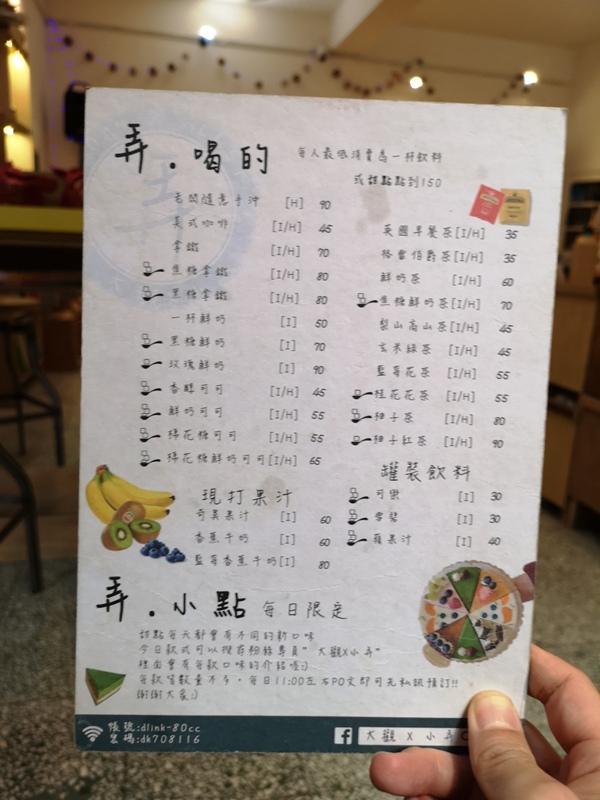 弄.喝的
每人最低消費為一杯飲料
或甜點點到150
老闆隨意手沖 [H] 90
美式咖啡 [I/H] 45
拿鐵 [I/H] 70
焦糖拿鐵 [I/H] 80
黑糖拿鐵 [I/H] 80
一杯鮮奶 [I] 50
黑糖鮮奶 [I] 70
玫瑰鮮奶 [I] 90
香醇可可 [I/H] 45
鮮奶可可 [I/H] 55
棉花糖可可 [I/H] 55
棉花糖鮮奶可可 [I/H] 65
英國早餐茶 [I/H] 35
格雷伯爵茶 [I/H] 35
鮮奶茶 [I/H] 60
焦糖鮮奶茶 [I/H] 70
梨山高山茶 [I/H] 45
玄米綠茶 [I/H] 45
藍莓花茶 [I/H] 55
桂花花茶 [I/H] 55
柚子茶 [I/H] 80
柚子紅茶 [I/H] 90
現打果汁
奇異果汁 [I] 60
香蕉牛奶 [I] 60
藍莓香蕉牛奶 [I] 80
罐裝飲料
可樂 [I] 30
雪碧 [I] 30
蘋果汁 [I] 40
弄.小點 每日限定
甜點每天都會有不同的新口味
今日款式可以搜尋粉絲專頁"大觀X小弄"
裡面會有每款口味的介紹喔:)
每款皆數量不多,每日11:00左右PO文即可先私訊預訂!!
謝謝大家:)
帳號:dlink-80cc
密碼:dk708116
大觀 X 小弄